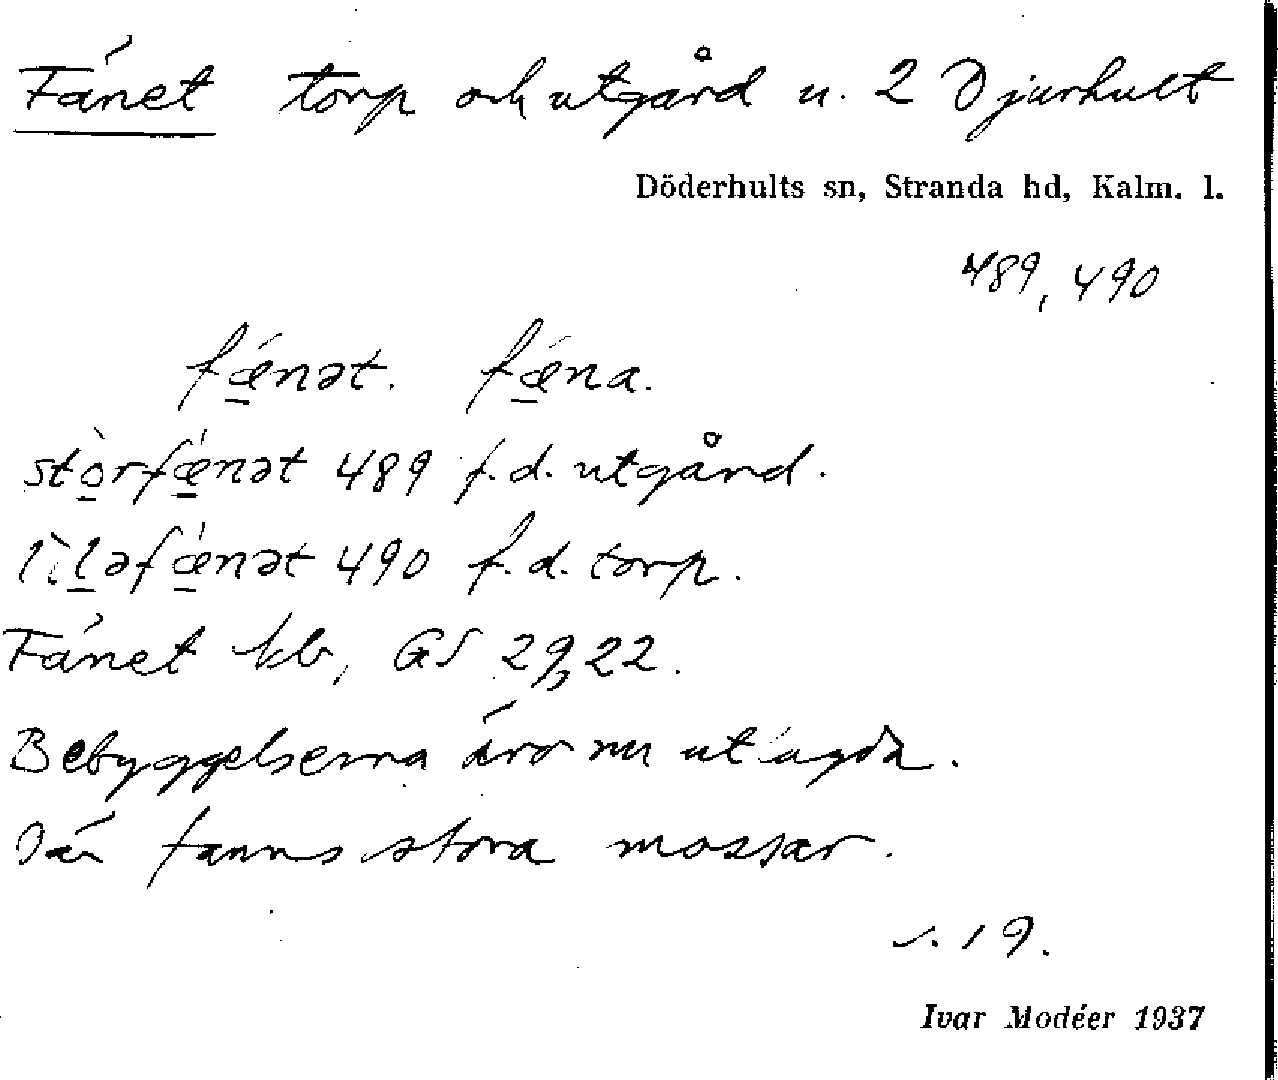 Fänet torp och utgård u. 2 Djurhult
Döderhults sn, Stranda hd, Kalm. l.
489, 490
fǽ̱nət. fǽ̱na.
stò̱rfǽ̱nət 489 f.d. utgård.
lìḻəfǽ̱nət 490 f.d. torp.
Fänet kb, GS 29, 22.
Bebyggelserna äro nu utägda.
Där fanns stora mossar.
s. 19.
Ivar Modéer 1937